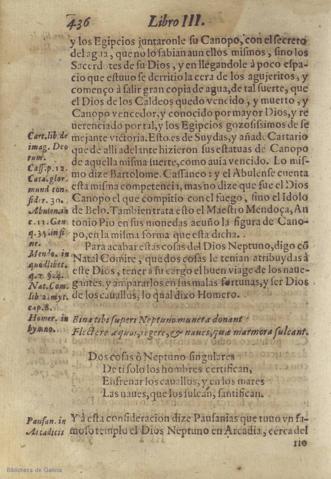 436 Libro III.
y los Egipcios juntaronle su Canopo, con el secreto
del agua, que no lo sabian aun ellos mismos, sino los
Sacerdotes de su Dios, y en llegandole à poco espa-
cio que estuuo se derritio la cera de los agujeritos, y
començo à salir gran copia de agua, de tal suerte, que
el Dios de los Caldeos quedo vencido, y muerto, y
Canopo vencedor, y conocido por mayor Dios, y re
uerenciado por tal, y los Egipcios gozosissimos de se
mejante victoria. Esto es de Suydas, y añad. Cartario
que de alli adelante hizieron sus estatuas de Canopo
de aquella misma suerte, como auia vencido. Lo mis-
mo dize Bartolome. Cassaneo: y el Abulense cuenta
esta misma competencia, mas no dize que fue el Dios
Canopo el que compitio con el fuego, sino el Idolo
de Belo. Tambien trata esto el Maestro Mendoça, An
tonio Pio en sus monedas acuño la figura de Cano-
po, en la misma forma que esta dicha.
Para acabar estas cosas del Dios Neptuno, digo cõ
Natal Comite, que dos cosas le tenian atribuydas à
este Dios, tener a su cargo el buen viage de los naue-
gantes, y ampararlos en sus malas fortunas, y ser Dios
de los cauallos, lo qual dixo Homero.
Bina tibi superi Neptuno munera donant
Flectere æquos, regere, & naues, quæ marmora sulcant.
Dos cosas ò Neptuno singulares
De ti solo los hombres certifican,
Enfrenar los cauallos, y en los mares
Las naues, que los sulcan, santifican.
Y à esta consideracion dize Pausanias que tuuo vn fa-
moso templo el Dios Neptuno en Arcadia, cerca del
110
Cart. lib. de
imag. Deo
rum.
Cass. p. 12.
Cata. glor.
mund con
sider. 30.
Abulen. in
c. 11. Gen.
q. 35. in fi
ne.
Mendo. in
quodlibet.
q. 2. 9. 4.
Nat. Com.
lib. 2. myt.
cap. 8.
Homer. in
hymno.
Pausan. in
Arcadicis
Biblioteca de Galicia